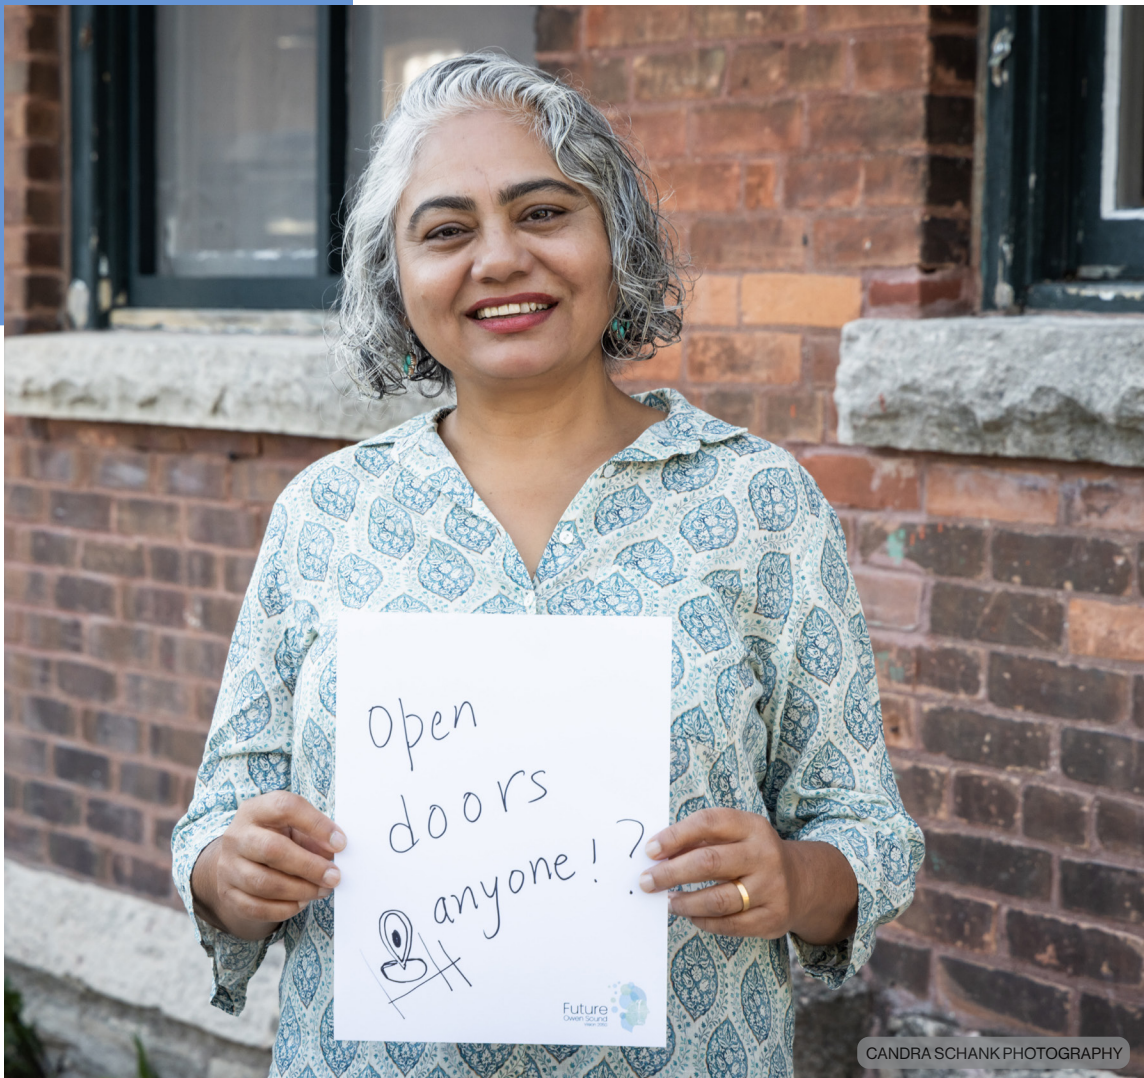 Open
doors
anyone!?
Future
Owen Sound
CANDRA SCHANK PHOTOGRAPHY